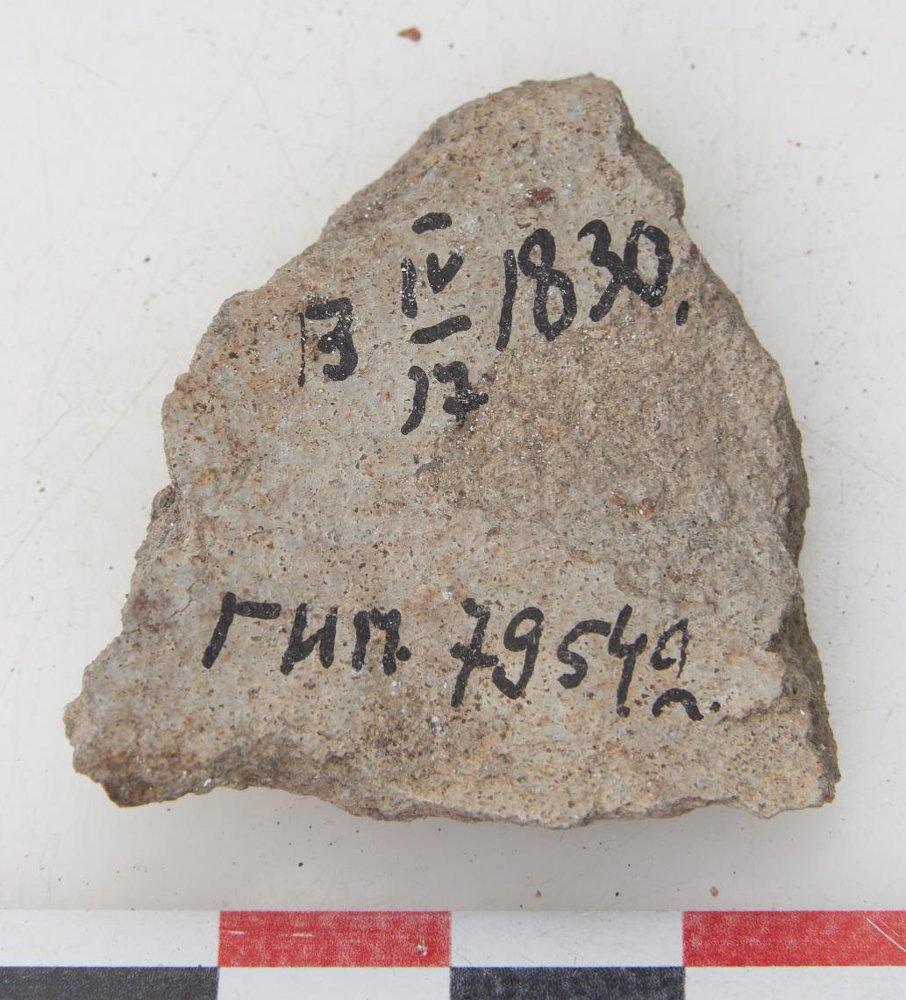 В IV/17 1830.
ГИМ. 79540.